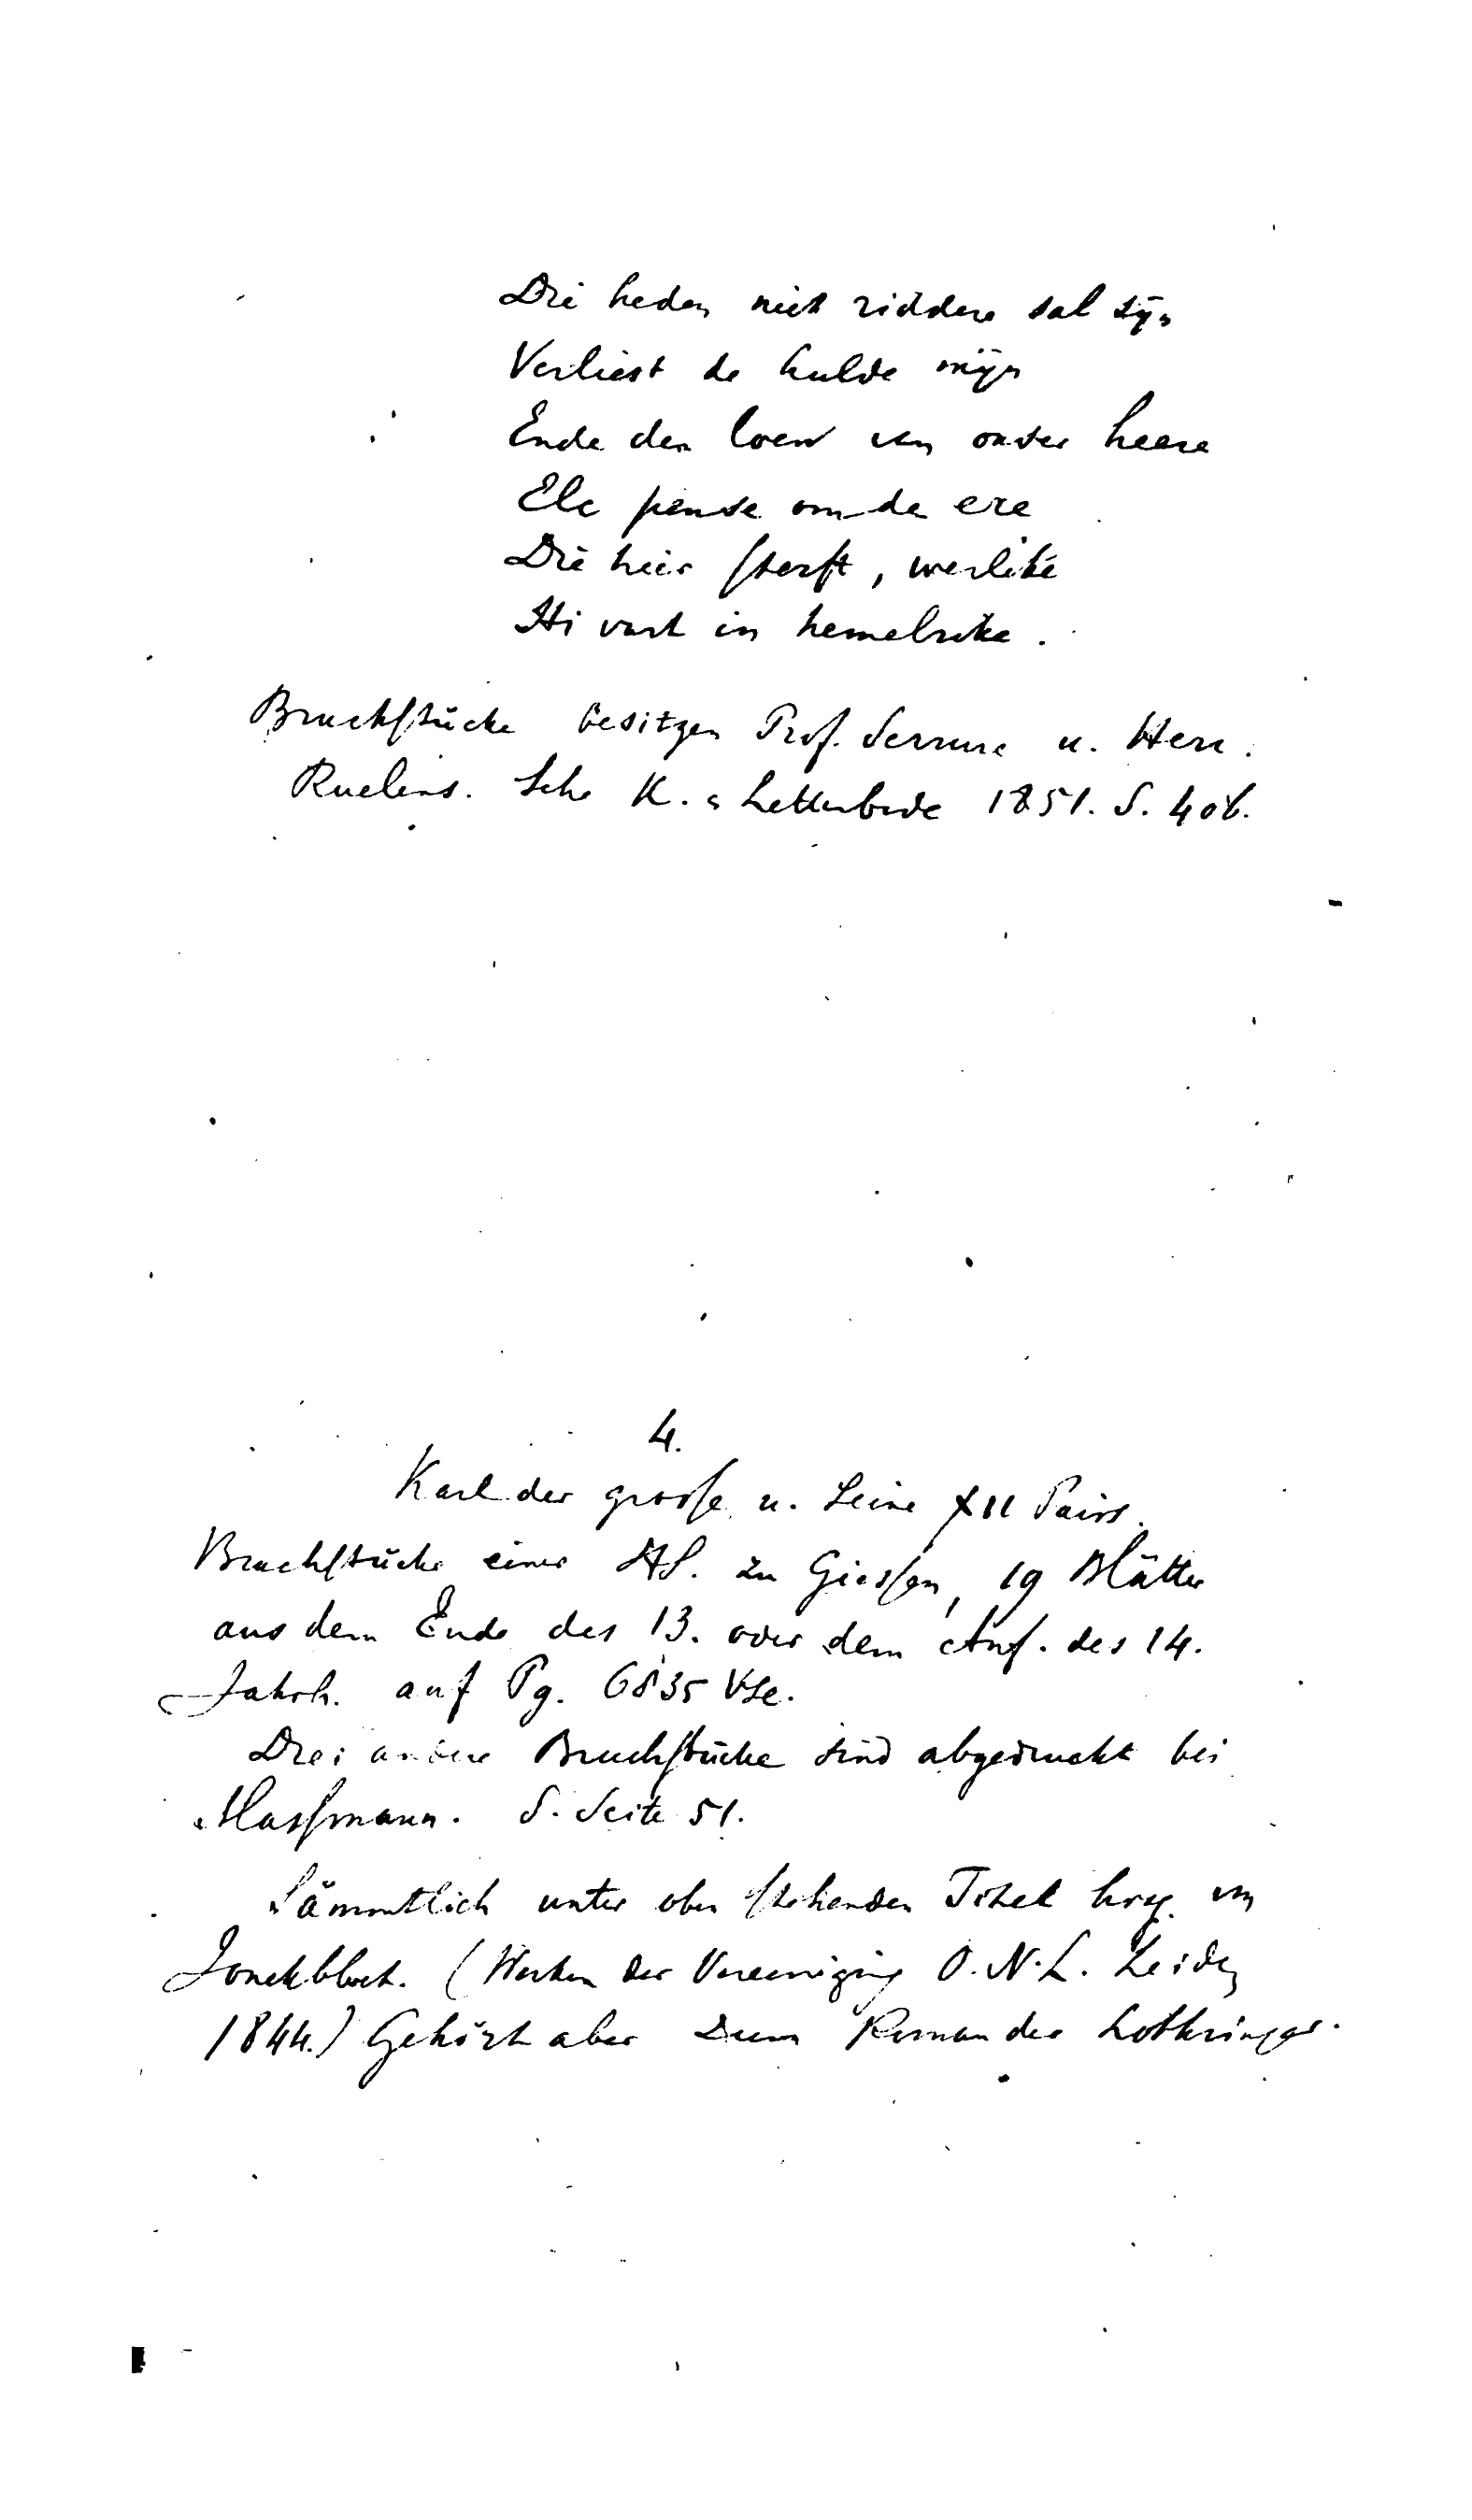 Die heden niet riddere sal syn
Verliest de hulde mijn
Ende den loen van onser heere
Elc pense om de ere
Die hier sterft, werlike
Hi vart in hemelrike.
Bruchstücke besitzen Prof. Serrure u. Herr
Ruelens. Sehe K. Letterbode 1851. S. 406.
4.
Karl der grosse u. seine XII Pairs.
Bruchstücke einer HS. zu Giessen, 19 Blätter
aus dem Ende des 13. oder dem Anf. des 14.
Jahrh. auf Pg. 6835 Vse.
Drei andere Bruchstücke sind abgedruckt bei
Massmann. S. Seite 51.
Sämmtlich unter oben stehenden Titel hrg. von
Jonckbloet. (Werken der Vereeniging O.N.L. Leiden
1844.) Gehört aber zum Roman der Lothringer.